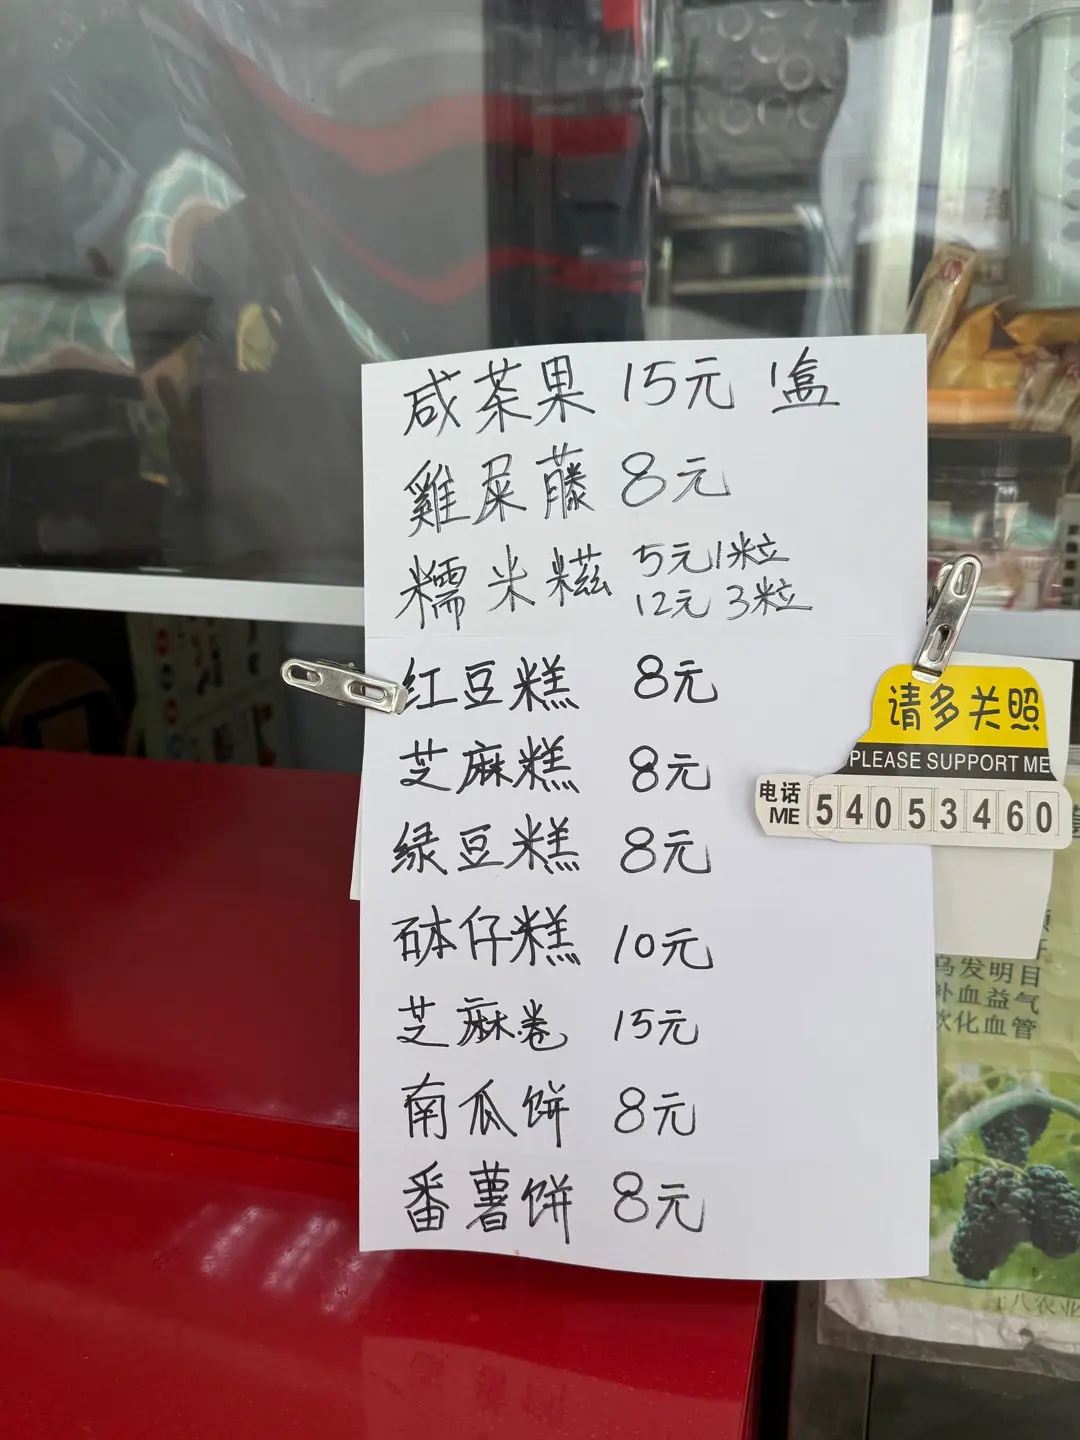 咸茶果 15元 1盒
雞屎藤 8元
糯米糍 5元1粒
12元 3粒
红豆糕 8元
芝麻糕 8元
绿豆糕 8元
砵仔糕 10元
芝麻卷 15元
南瓜饼 8元
番薯饼 8元
请多关照
PLEASE SUPPORT ME
电话
ME
54053460
乌发明目
补血益气
软化血管